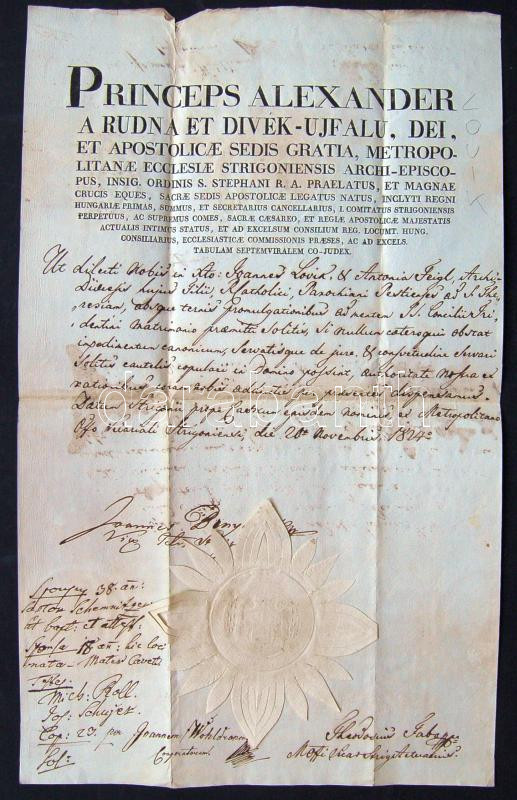 PRINCEPS ALEXANDER
A RUDNA ET DIVÉK-UJFALU, DEI,
ET APOSTOLICÆ SEDIS GRATIA, METROPO-
LITANÆ ECCLESIÆ STRIGONIENSIS ARCHI-EPISCO-
PUS, INSIG. ORDINIS S. STEPHANI R. A. PRAELATUS, ET MAGNAE
CRUCIS EQUES, SACRÆ SEDIS APOSTOLICÆ LEGATUS NATUS, INCLYTI REGNI
HUNGARIÆ PRIMAS, SUMMUS, ET SECRETARIUS CANCELLARIUS, I. COMITATUS STRIGONIENSIS
PERPETUUS, AC SUPREMUS COMES, SACRÆ CÆSAREO, ET REGIÆ APOSTOLICÆ MAJESTATIS
ACTUALIS INTIMUS STATUS, ET AD EXCELSUM CONSILIUM REG. LOCUMT. HUNG.
CONSILIARIUS, ECCLESIASTICÆ COMMISSIONIS PRÆSES, AC AD EXCELS.
TABULAM SEPTEMVIRALEM CO-JUDEX.
Ut dilecti Nobis in Xto: Joannes Lovik, & Antonia Feigl, Archi-
Diœcesis hujus Filii Rtholici, Parochiani Pestienses ad S. The
resian, absque ternis promulgationibus ad mentem S. Concilii Tri,
dentini Matrimonio præmitti Solitis, Si nullum cæteroquin obstat
impedimentum canonicum, Servatisque de jure, & consvetudine Servari
Solitis cautelis copulari in Domino possint, authoritate Nostra ex
rationibus coram Nobis adductis per præsentes dispensamus.
Datum Strigonii prope Calcem ejusdem nominis, ex Metropolitano
Offo Vicariali Strigoniensi, die 20a Novembris 1824o
Joannes
Sponsus 38. an:
Schemnitz
Sponsa 18 an: hic loci
nata - Mater Cavet:
Testes:
Mich: Roll.
Jos:
Cop: 23. per Joannem
Cooperatorem
Theodosius
carabanth
LOVIK